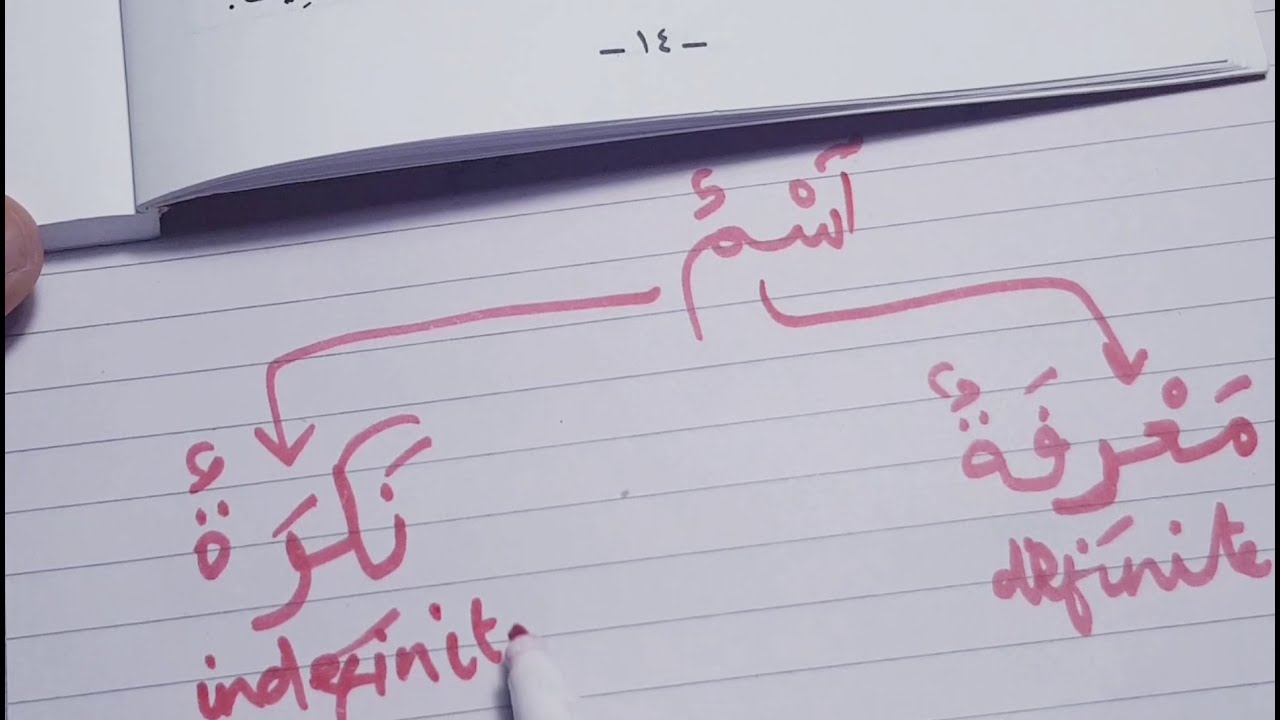 – ١٤ –
ٱسْمٌ
مَعْرِفَةٌ
definite
نَكِرَةٌ
indefinit